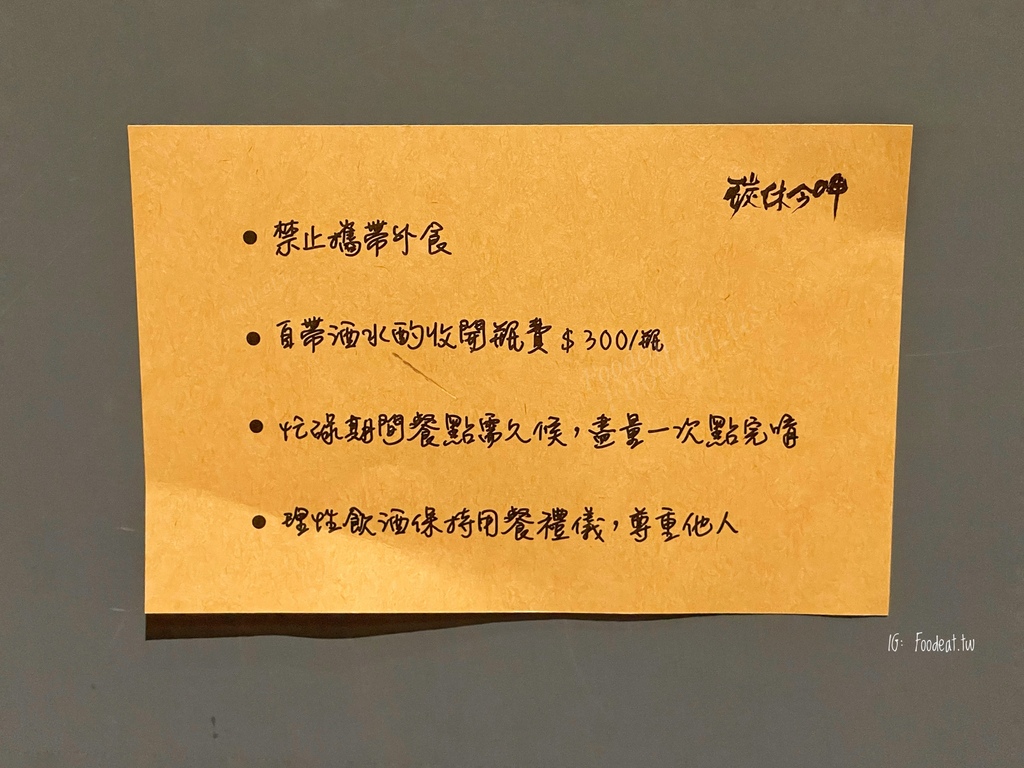 碳佧今呷
● 禁止攜帶外食
● 自帶酒水酌收開瓶費 $300/瓶
● 忙碌期間餐點需久候，盡量一次點完唷
● 理性飲酒保持用餐禮儀，尊重他人
IG: Foodeat.tw